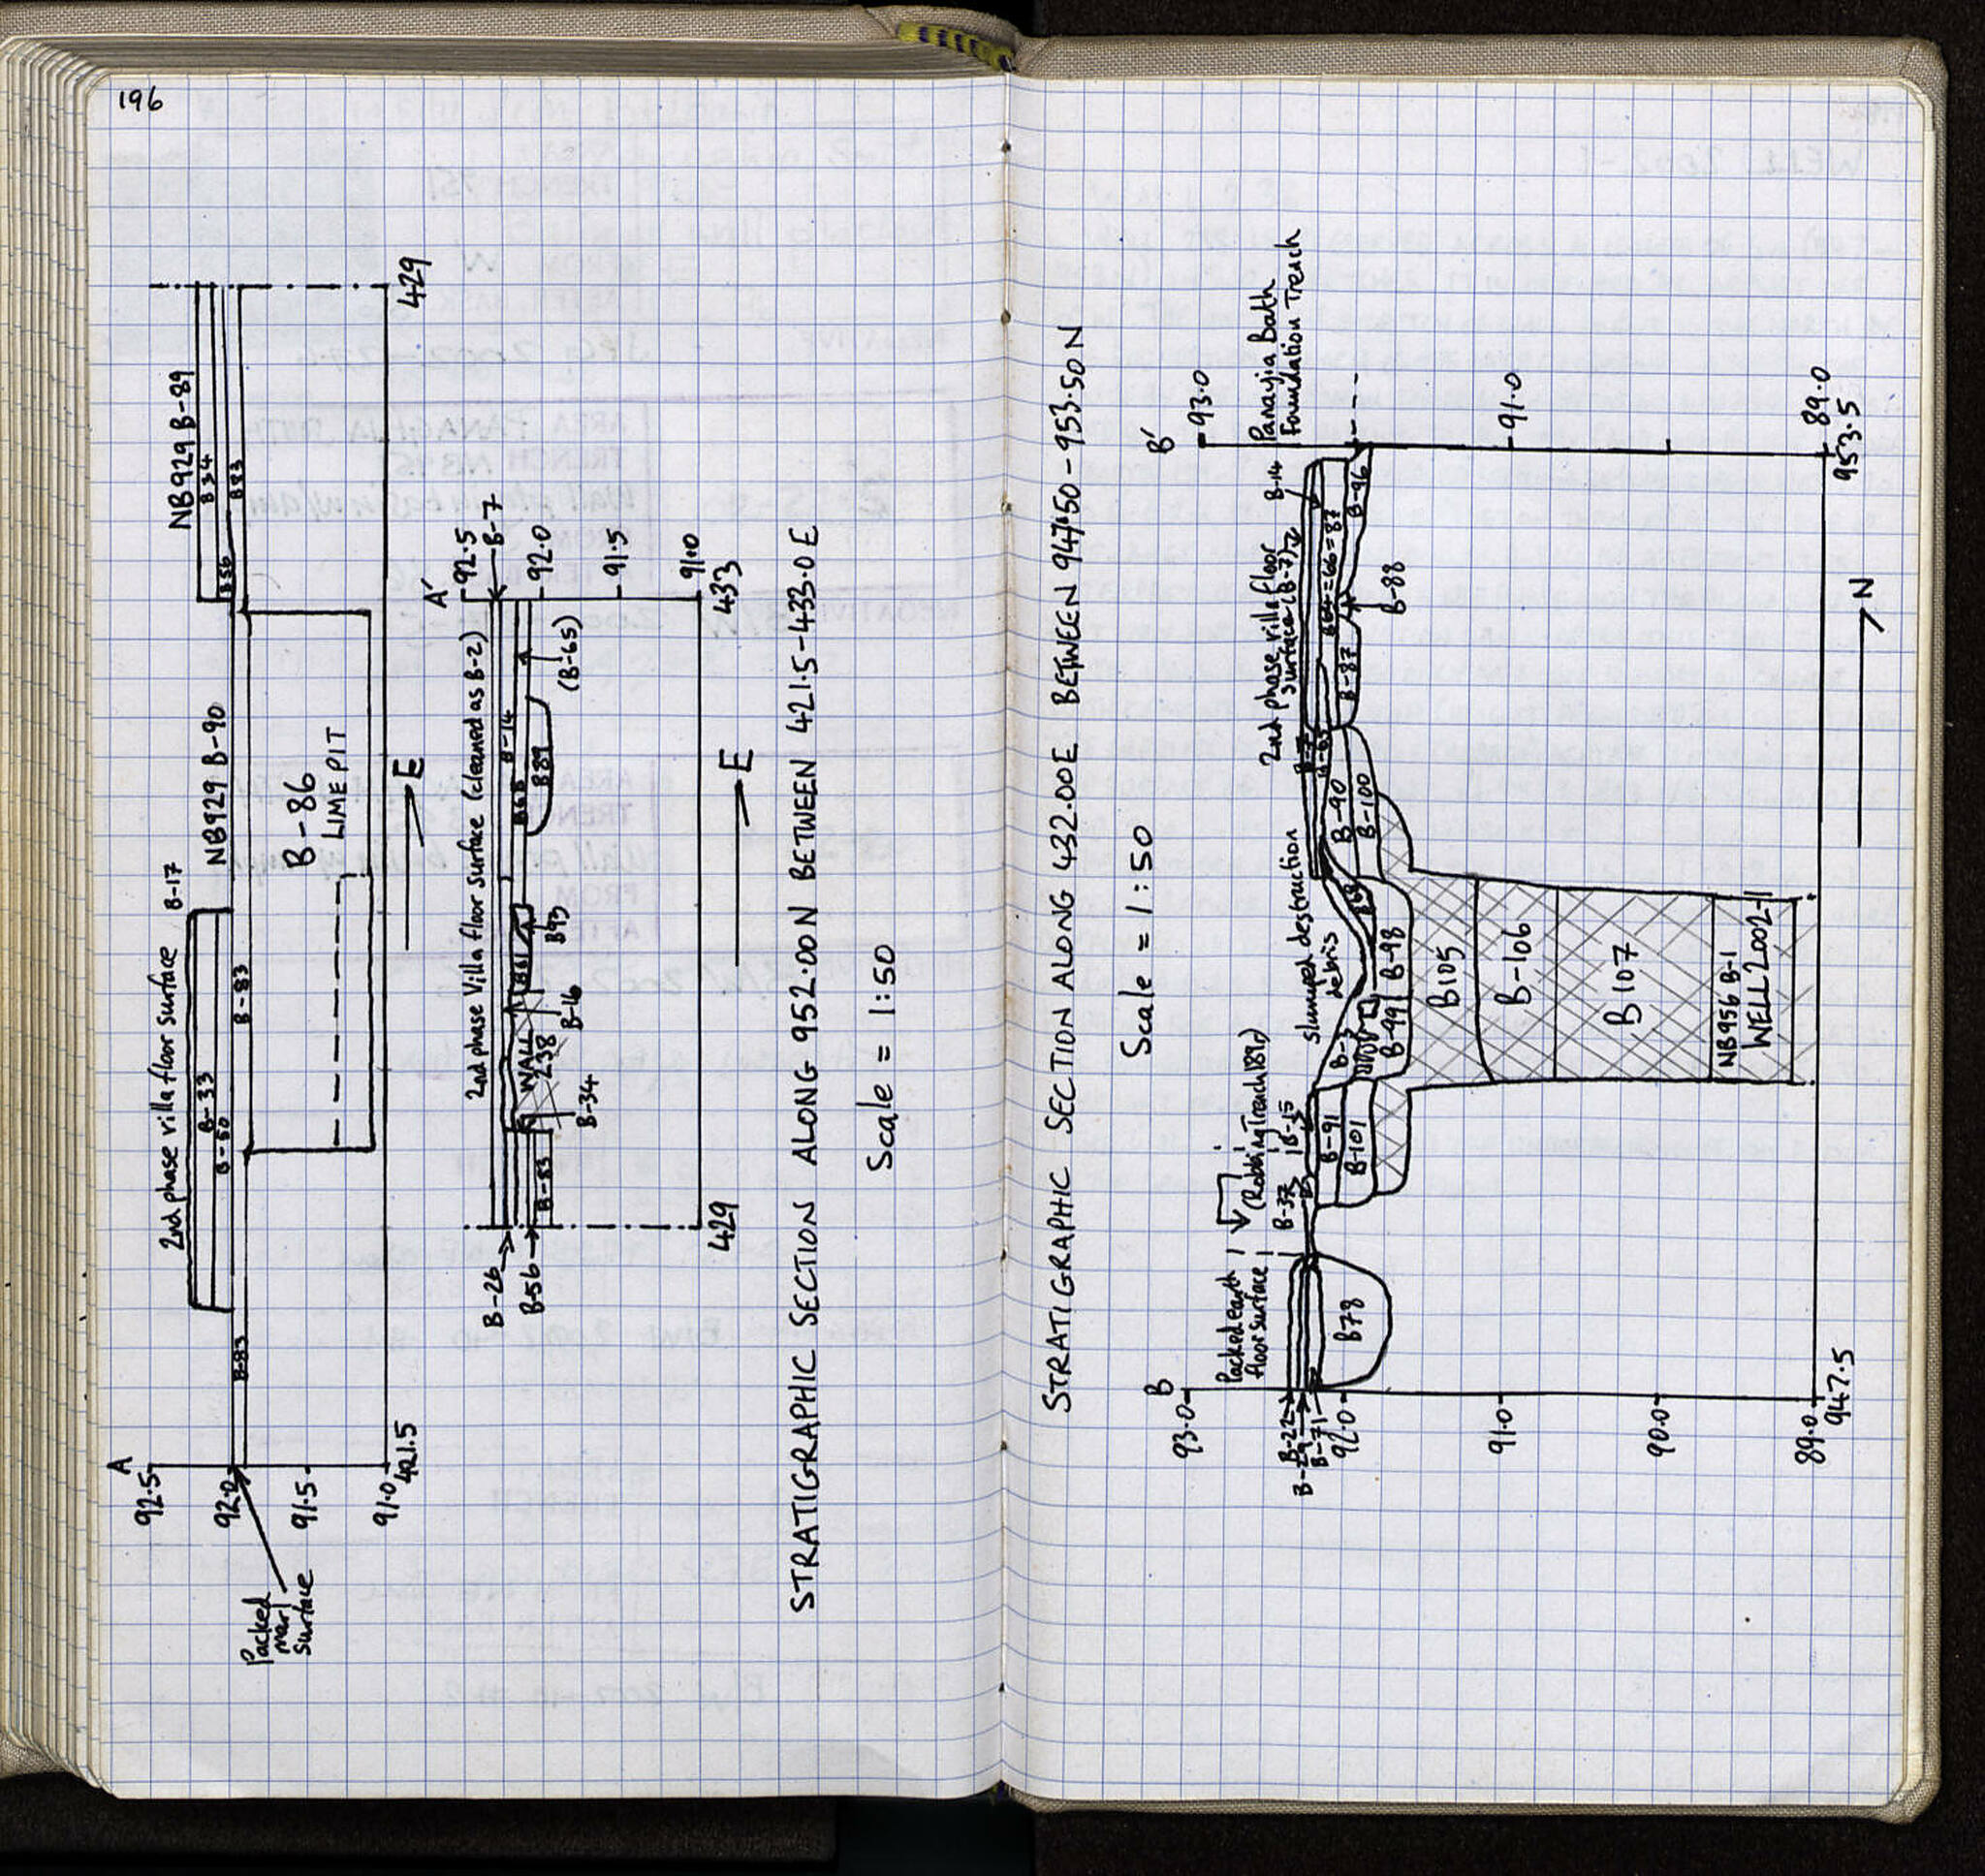 196
2nd phase villa floor surface
B-17
NB929 B-90
NB929 B-89
B-33
B-50
B-83
B-83
B56
B34
B83
B-86
LIME PIT
A
92.5
92.0
91.5
91.0
421.5
429
E
Packed
marl
surface
2nd phase Villa floor surface (cleaned as B-2)
A'
92.5
B-7
92.0
91.5
91.0
433
B-26
B-56
B-83
WALL
238
B-34
B-16
B61
B93
B68
B-14
B89
(B-65)
429
E
STRATIGRAPHIC SECTION ALONG 952.00N BETWEEN 421.5-433.0 E
Scale = 1:50
STRATIGRAPHIC SECTION ALONG 432.00E BETWEEN 947.50-953.50N
Scale = 1:50
B
93.0
B-22
B-29
B-71
92.0
91.0
90.0
89.0
947.5
Packed earth
floor surface
(Robbing Trench 1812)
B-37
B-15
B78
B-91
B-101
Slumped destruction
debris
B-99
B-98
B-90
B-100
B105
B-106
B107
NB956 B-1
WELL 2002-1
2nd phase villa floor
surface (B-7)
B-14
B-7
B-87
B64=66=87
B-96
B-88
Panayia Bath
Foundation Trench
B'
93.0
91.0
89.0
953.5
N